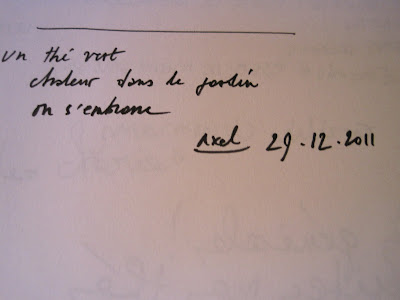 un thé vert
chaleur dans le jardin
on s'embrasse
Axel 29.12.2011